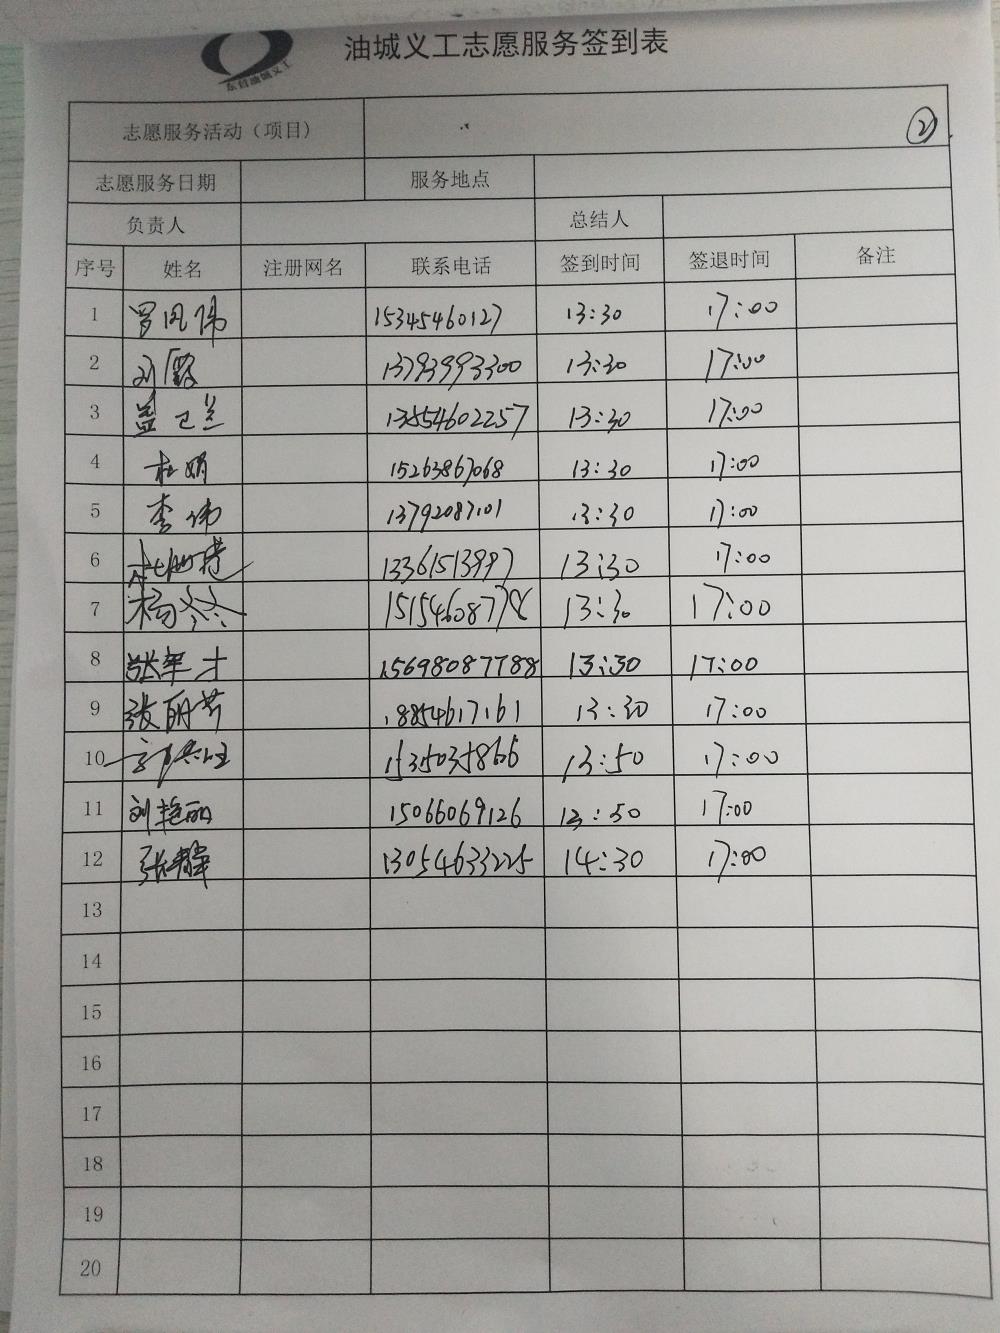 油城义工志愿服务签到表
东营油城义工
志愿服务活动（项目） ②
志愿服务日期 服务地点
负责人 总结人
序号 姓名 注册网名 联系电话 签到时间 签退时间 备注
1 罗凤伟 15345460127 13:30 17:00
2 刘霞 13793993300 13:30 17:00
3 盖卫兰 13554602257 13:30 17:00
4 杜娟 15263867068 13:30 17:00
5 李伟 13792087101 13:30 17:00
6 13361513997 13:30 17:00
7 杨冬冬 13:30 17:00
8 张军才 15698087788 13:30 17:00
9 张丽芳 18854617161 13:30 17:00
10 15350358666 13:50 17:00
11 刘艳丽 15066069126 13:50 17:00
12 张静 13054633225 14:30 17:00
13
14
15
16
17
18
19
20